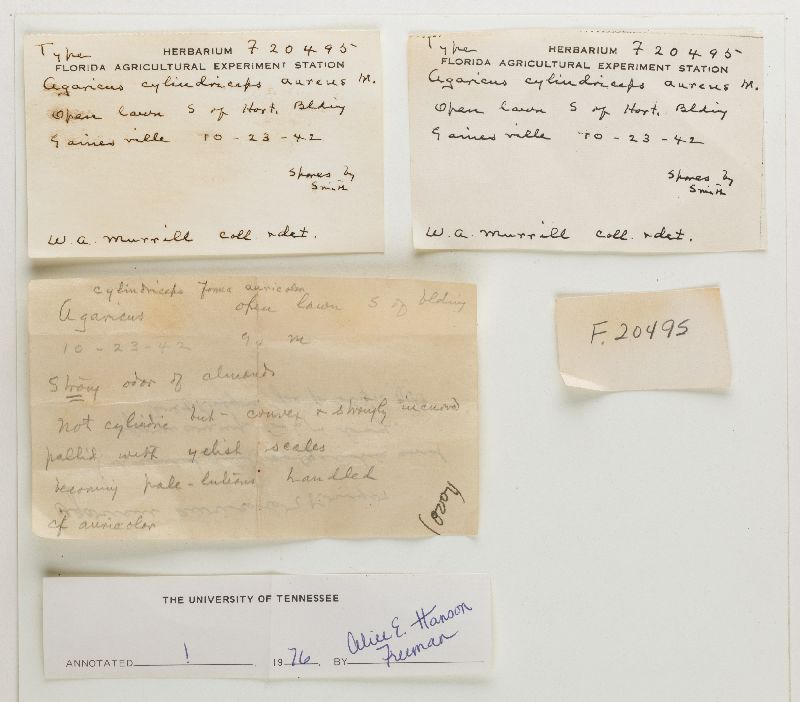 Type HERBARIUM F 20495
FLORIDA AGRICULTURAL EXPERIMENT STATION
Agaricus cylindriceps aureus M.
Open lawn S of Hort. Blding
Gainesville 10-23-42
Spores by
Smith
W.A. Murrill coll. & det.
Type HERBARIUM F 20495
FLORIDA AGRICULTURAL EXPERIMENT STATION
Agaricus cylindriceps aureus M.
Open lawn S of Hort. Blding
Gainesville 10-23-42
Spores by
Smith
W.A. Murrill coll. & det.
cylindriceps forma auricolor
Agaricus open lawn S of blding
10-23-42 m
Strong odor of almonds
not cylindric but convex & strongly incurved
pallid with yelish scales
becoming pale-luteous handled
cf auricolor
F. 20495
THE UNIVERSITY OF TENNESSEE
ANNOTATED ! 1976 BY Alice E. Hanson
Freeman